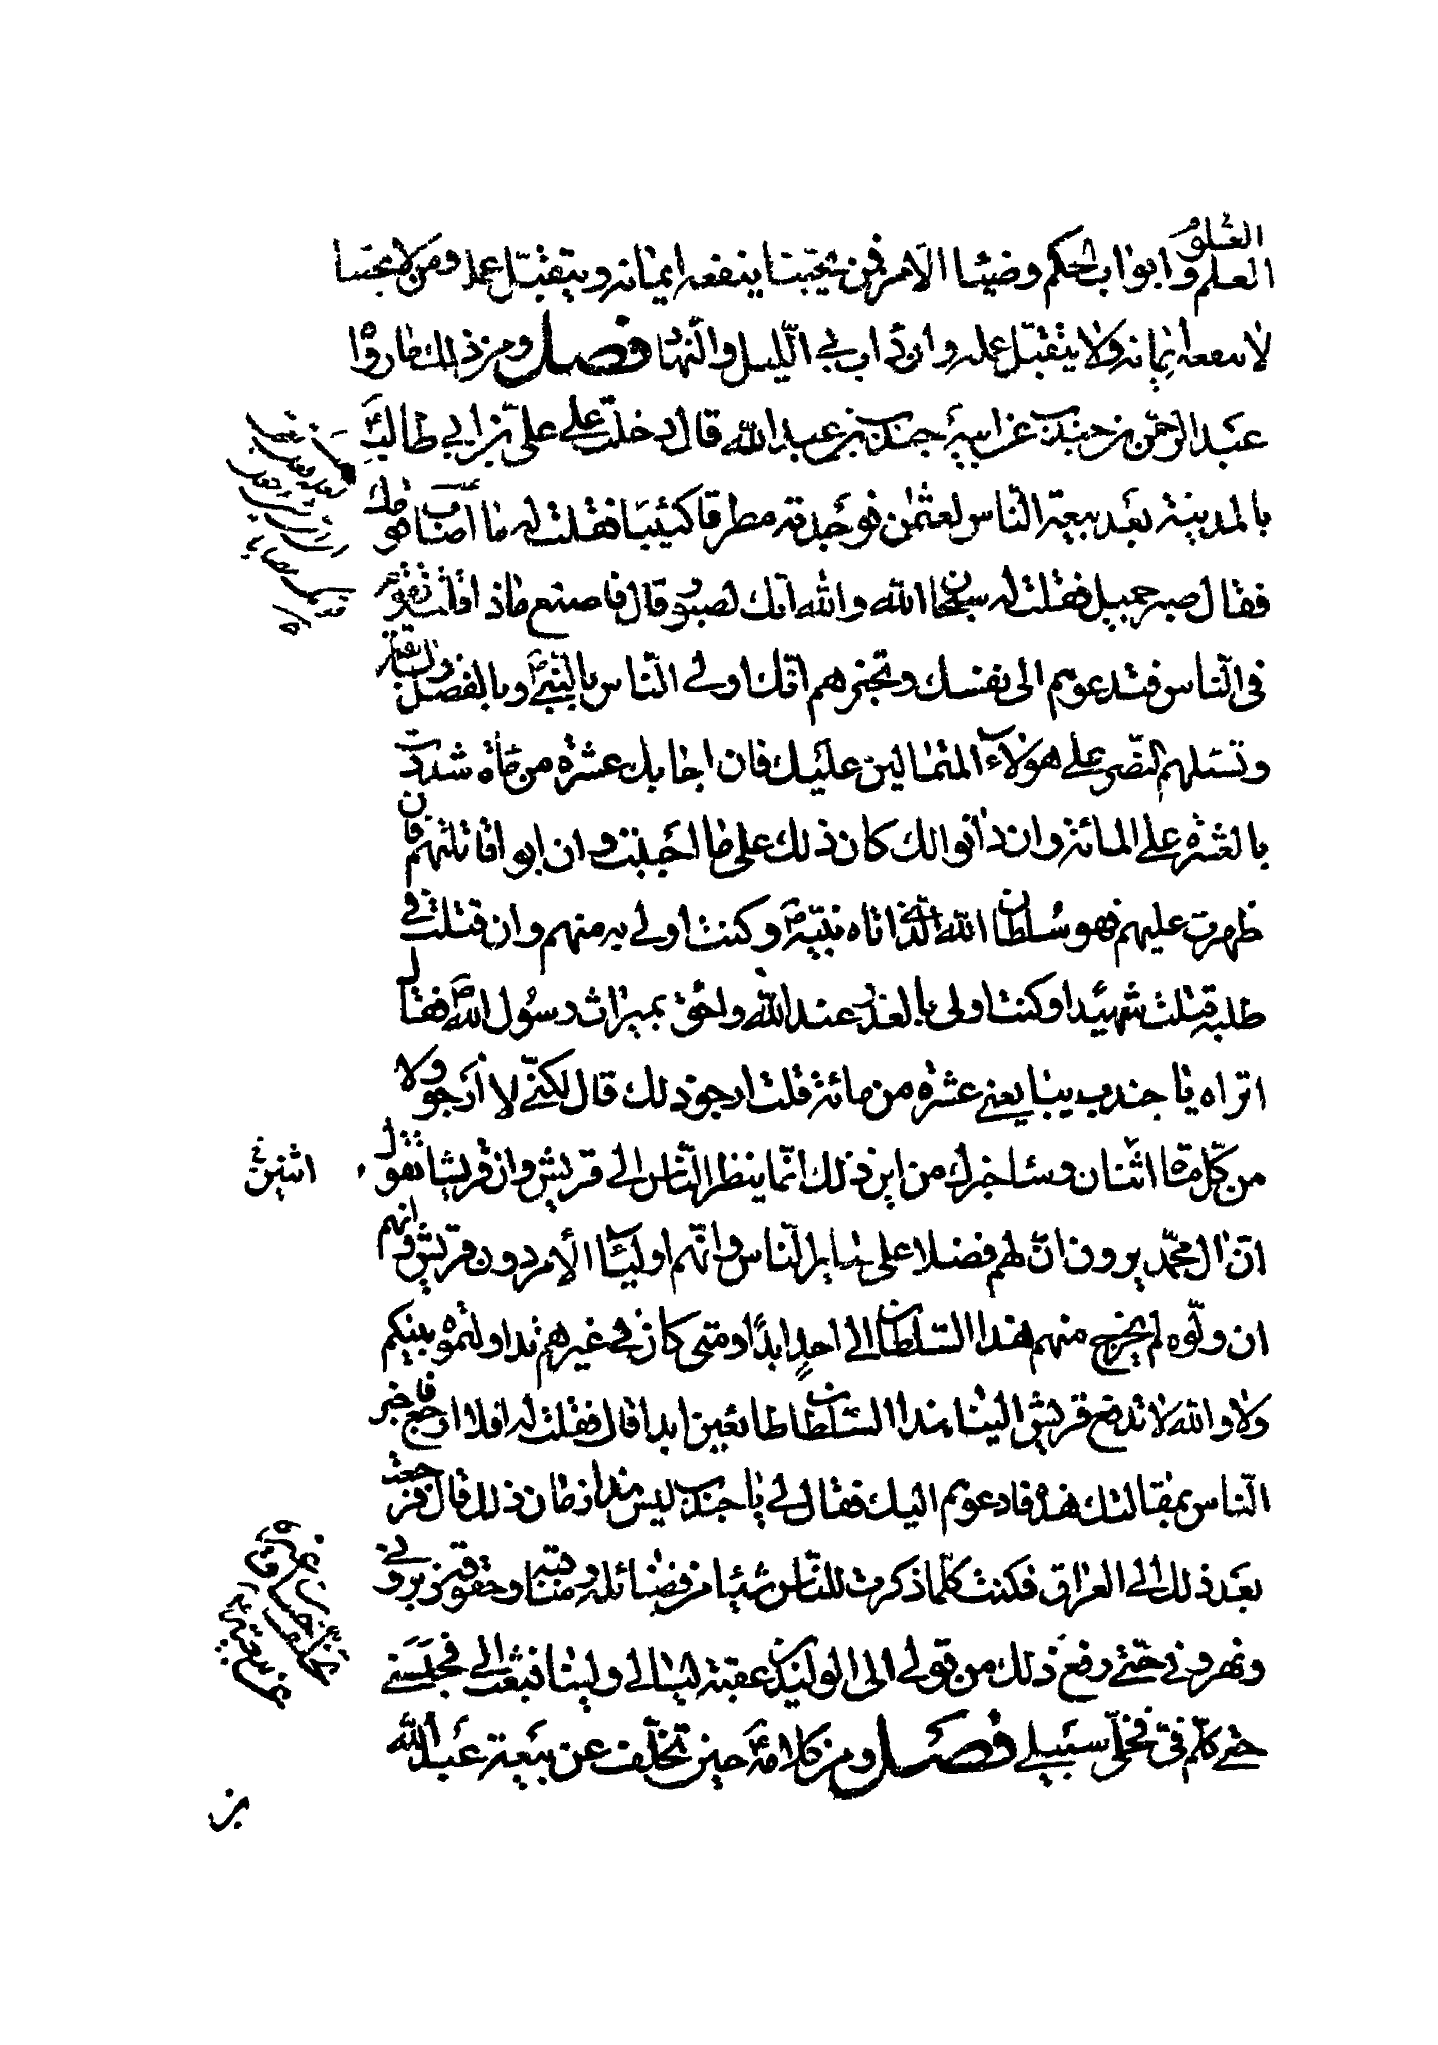 العلوم
العلم وابواب الحكم وضياء الامر فمن يحبنا ينفعه ايمانه ويتقبل عمله ومن لا يحبنا
لا ينفعه ايمانه ولا يتقبل عمله وان دأب في الليل والنهار فصل ومن ذلك ما رواه
عبد الرحمن بن جندب عن ابيه جندب بن عبد الله قال دخلت على علي بن ابي طالب
بالمدينة بعد بيعة الناس لعثمن فوجدته مطرقا كئيبا فقلت له ما اصاب قومك
فقال صبر جميل فقلت له سبحان الله والله انك لصبور قال فاصنع ماذا قلت تقوم
في الناس فتدعوهم الى نفسك وتخبرهم انك اولى الناس بالنبي ص وبالفضل والسابقة
وتسئلهم النصر على هولاء المتمالين عليك فان اجابك عشرة من مأة شددت
بالعشرة على المائة وان دانوا لك كان ذلك على ما احببت وان ابوا قاتلتهم فان
ظهرت عليهم فهو سلطان الله الذي اتاه نبيه ص وكنت اولى به منهم وان قتلت في
طلبه قتلت شهيدا وكنت اولى بالعذر عند الله واحق بميراث رسول الله ص فقال
اتراه يا جندب يبايعني عشرة من مائة قلت ارجو ذلك قال لكني لا ارجو ولا
من كل مائة اثنان وساخبرك من اين ذلك انما ينظر الناس الى قريش وان قريشا تقول
اثنين
ان ال محمد يرون ان لهم فضلا على ساير الناس وانهم اولياء الامر دون قريش وانهم
ان ولوه لم يخرج منهم هذا السلطان الى احد ابدا ومتى كان في غيرهم تداولتموه بينكم
ولا والله لا تدفع قريش الينا هذا السلطان طائعين ابدا قال فقلت له افلا ارجع فاخبر
الناس بمقالتك هذه فادعوهم اليك فقال لي يا جندب ليس هذا زمان ذلك قال فرجعت
بعد ذلك الى العراق فكنت كلما ذكرت للناس شيئا من فضائله ومناقبه وحقوقه زبروني
ونهروني حتى رفع ذلك من قولي الى الوليد بن عقبة ليالي ولينا فبعث الي فحبسني
حتى كلم في فخلى سبيلي فصل ومن كلامه ع حين تخلف عن بيعته عبد الله
بن